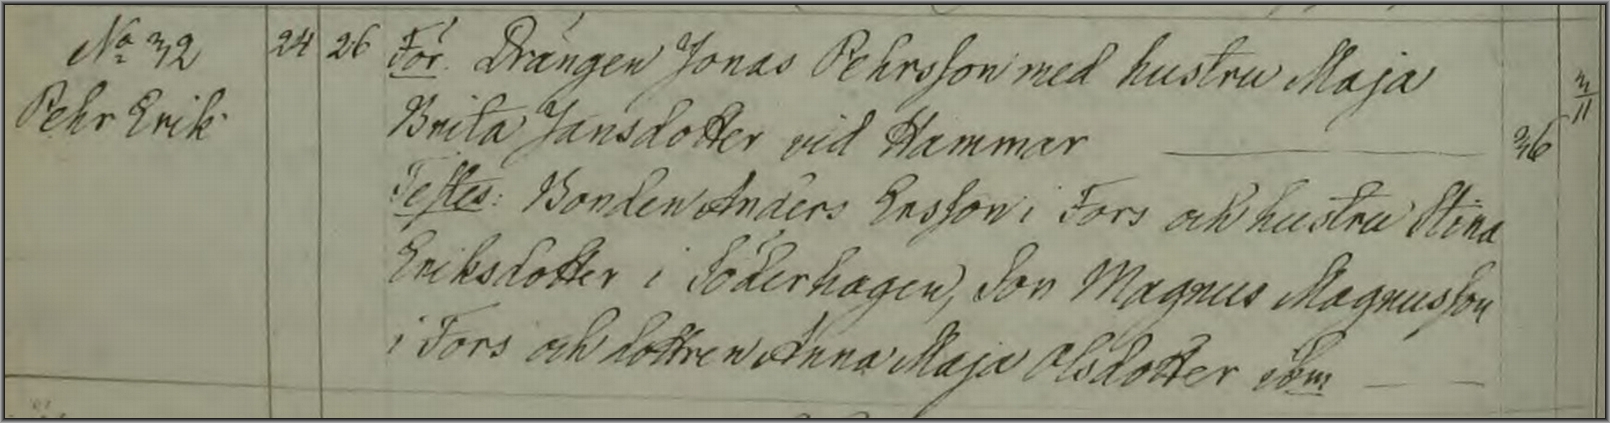 No 32 24 26 För. Drängen Jonas Pehrsson med hustru Maja
Pehr Erik Brita Jansdotter vid Hammar 36 3/11
Testes: Bonden Anders Ersson i Fors och hustru Stina
Eriksdotter i Söderhagen, Son Magnus Magnusson
i Fors och dottren Anna Maja Olsdotter